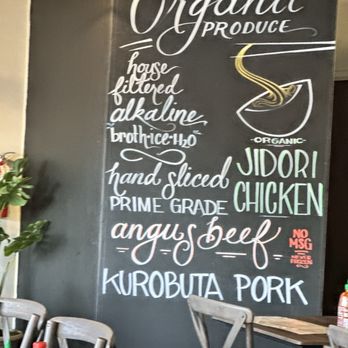 Organic
PRODUCE
house
filtered
alkaline
"broth·ice·H2O"
-ORGANIC-
JIDORI
CHICKEN
hand sliced
PRIME GRADE
angus beef
NO
MSG
NEVER
FROZEN
KUROBUTA PORK